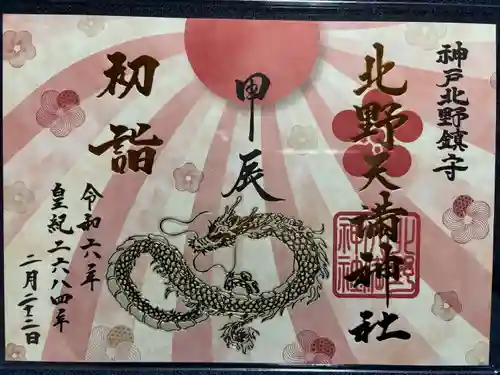 神戸北野鎮守
北野天満神社
甲辰
初詣
令和六年
皇紀二六八四年
二月二十二日
北野
神社